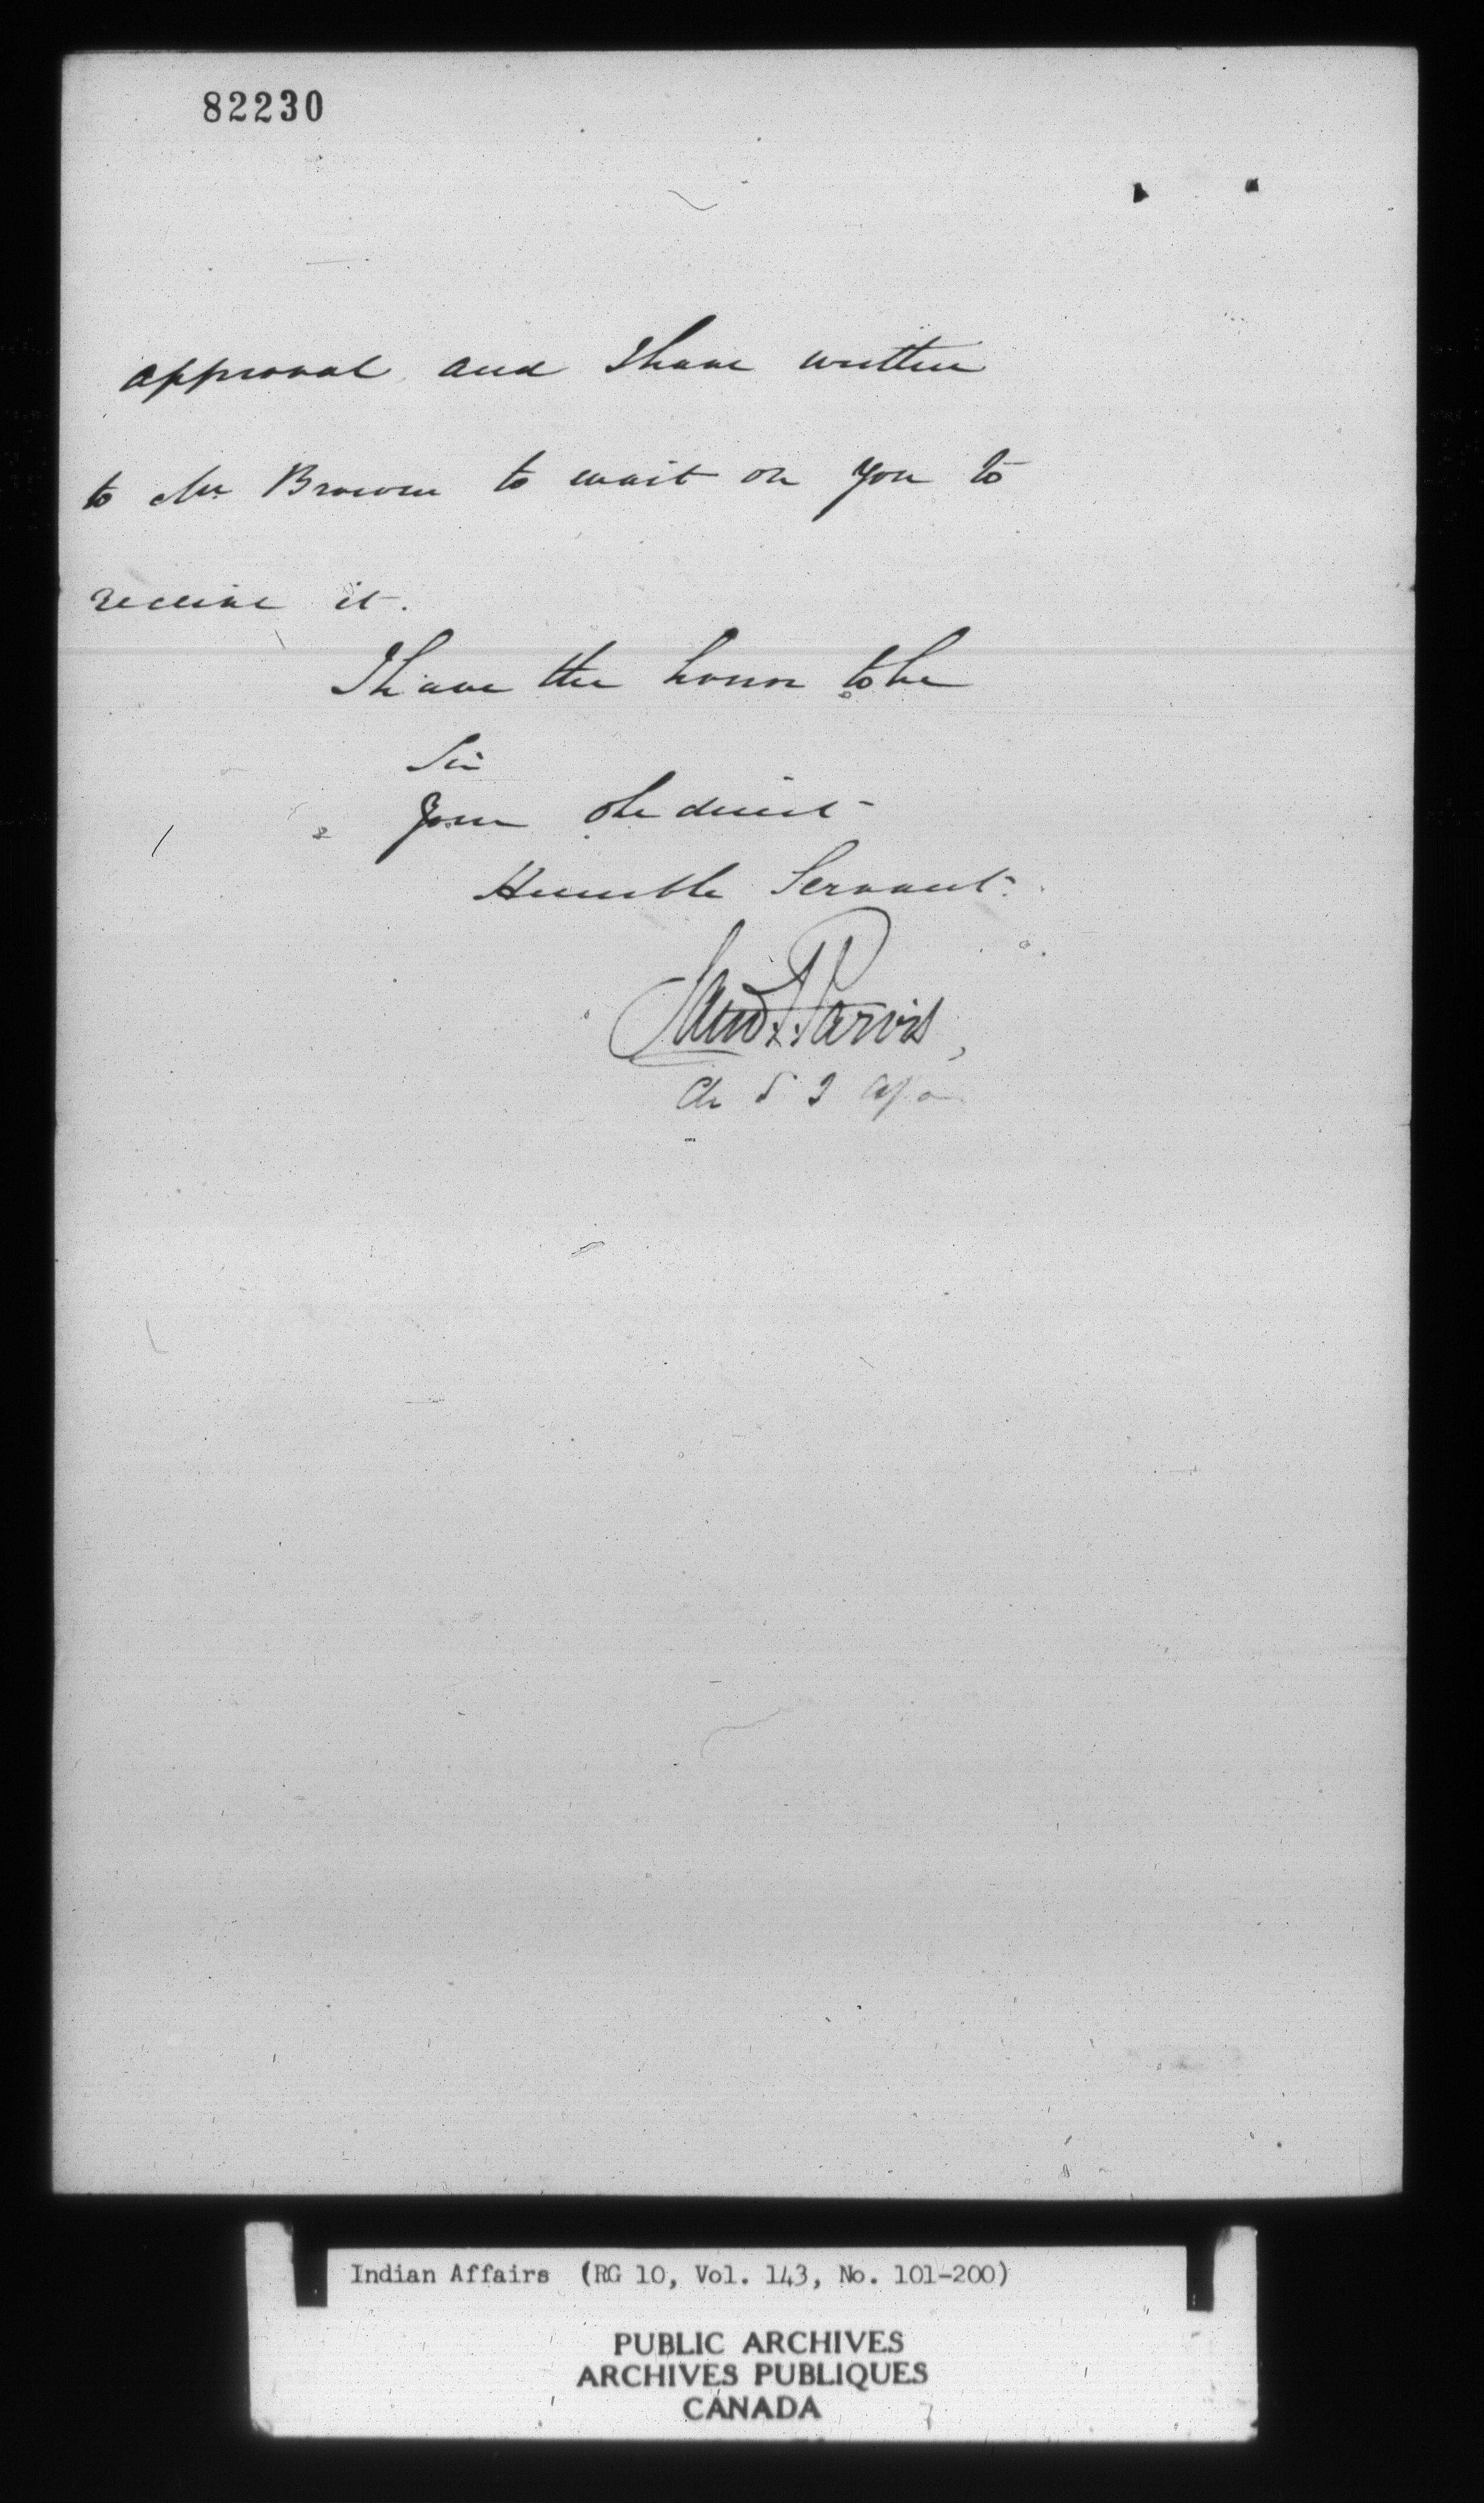 82230
approval and I have written
to Mr Brown to wait on you to
receive it.
I have the honor to be
Sir
Your obedient
Humble Servant.
Saml P. Jarvis,
Ch S I
Indian Affairs (RG 10, Vol. 143, No. 101-200)
PUBLIC ARCHIVES
ARCHIVES PUBLIQUES
CANADA